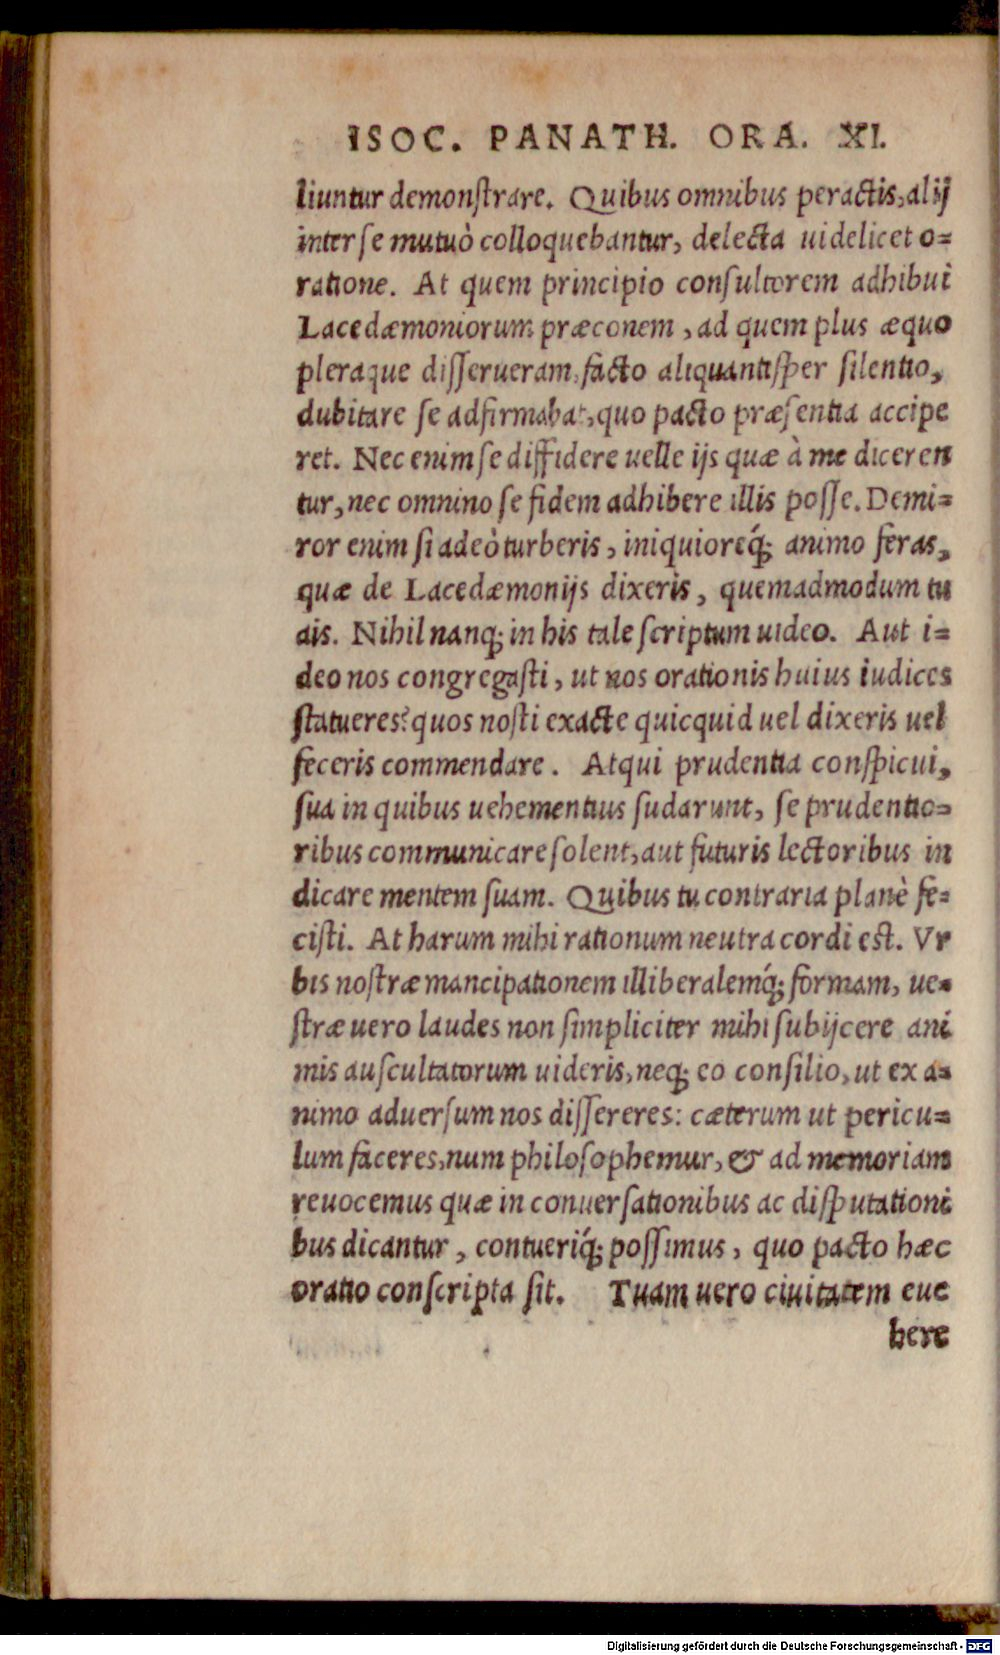 ISOC. PANATH. ORA. XI.
liuntur demonſtrare. Quibus omnibus peractis, alij
inter ſe mutuò colloquebantur, delecta uidelicet o=
ratione. At quem principio conſultorem adhibui
Lacedæmoniorum præconem, ad quem plus æquo
pleraque diſſerueram, facto aliquantiſper ſilentio,
dubitare ſe adfirmabat, quo pacto præſentia accipe
ret. Nec enim ſe diffidere uelle ijs quæ à me diceren
tur, nec omnino ſe fidem adhibere illis poſſe. Demi=
ror enim ſi adeò turberis, iniquioreq́; animo feras,
quæ de Lacedæmonijs dixeris, quemadmodum tu
ais. Nihil nanq; in his tale ſcriptum uideo. Aut i=
deo nos congregaſti, ut nos orationis huius iudices
ſtatueres? quos noſti exacte quicquid uel dixeris uel
feceris commendare. Atqui prudentia conſpicui,
ſua in quibus uehementius ſudarunt, ſe prudentio=
ribus communicare ſolent, aut futuris lectoribus in
dicare mentem ſuam. Quibus tu contraria planè fe=
ciſti. At harum mihi rationum neutra cordi eſt. Vr
bis noſtræ mancipationem illiberalemq́; formam, ue=
ſtræ uero laudes non ſimpliciter mihi ſubijcere ani
mis auſcultatorum uideris, neq; eo conſilio, ut ex a=
nimo aduerſum nos diſſereres: cæterum ut pericu=
lum faceres, num philoſophemur, & ad memoriam
reuocemus quæ in conuerſationibus ac diſputationi
bus dicantur, contueriq́; poſſimus, quo pacto hæc
oratio conſcripta ſit. Tuam uero ciuitatem eue
here
Digitalisierung gefördert durch die Deutsche Forschungsgemeinschaft - DFG